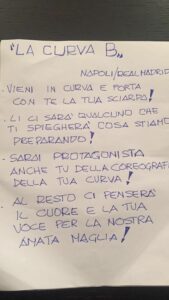 "LA CURVA B„
NAPOLI/REAL MADRID
• VIENI IN CURVA E PORTA
CON TE LA TUA SCIARPA!
• LI CI SARÀ QUALCUNO CHE
TI SPIEGHERÀ COSA STIAMO
PREPARANDO!
• SARAI PROTAGONISTA
ANCHE TU DELLA COREOGRAFI
DELLA TUA CURVA!
• AL RESTO CI PENSERÀ
IL CUORE E LA TUA
VOCE PER LA NOSTRA
AMATA MAGLIA!